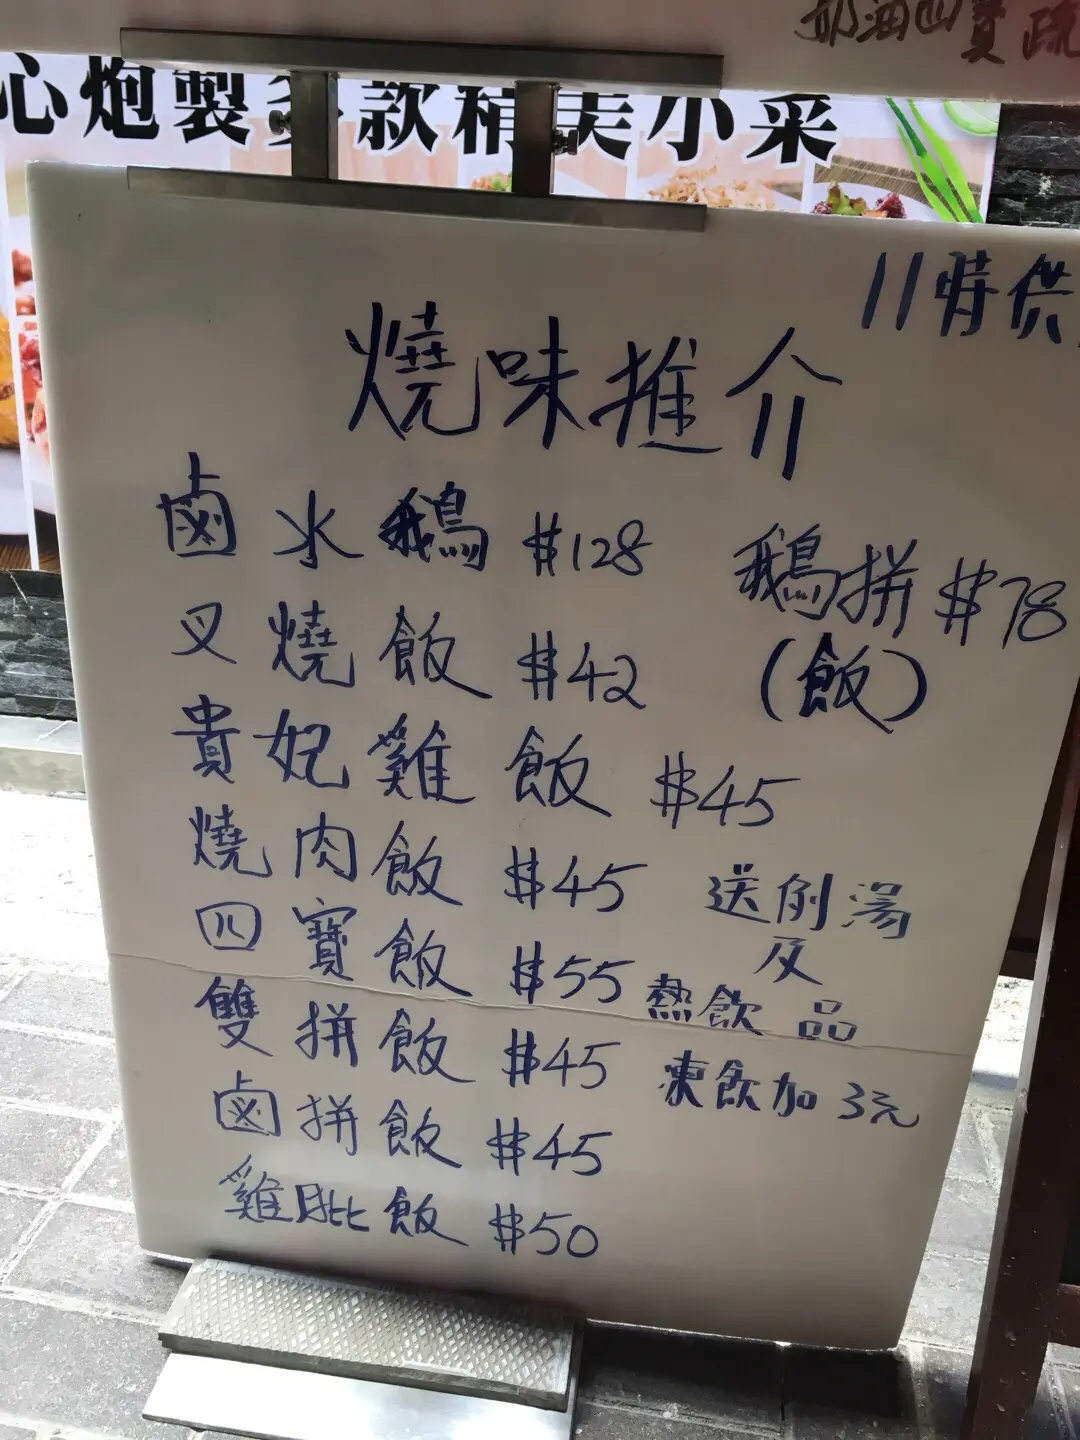 奶油四寶蔬
心炮製多款精美小菜
11時供
燒味推介
鹵水鵝 $128
鵝拼 $78
(飯)
叉燒飯 $42
貴妃雞飯 $45
燒肉飯 $45
四寶飯 $55
雙拼飯 $45
鹵拼飯 $45
雞髀飯 $50
送例湯
及
熱飲品
凍飲加3元